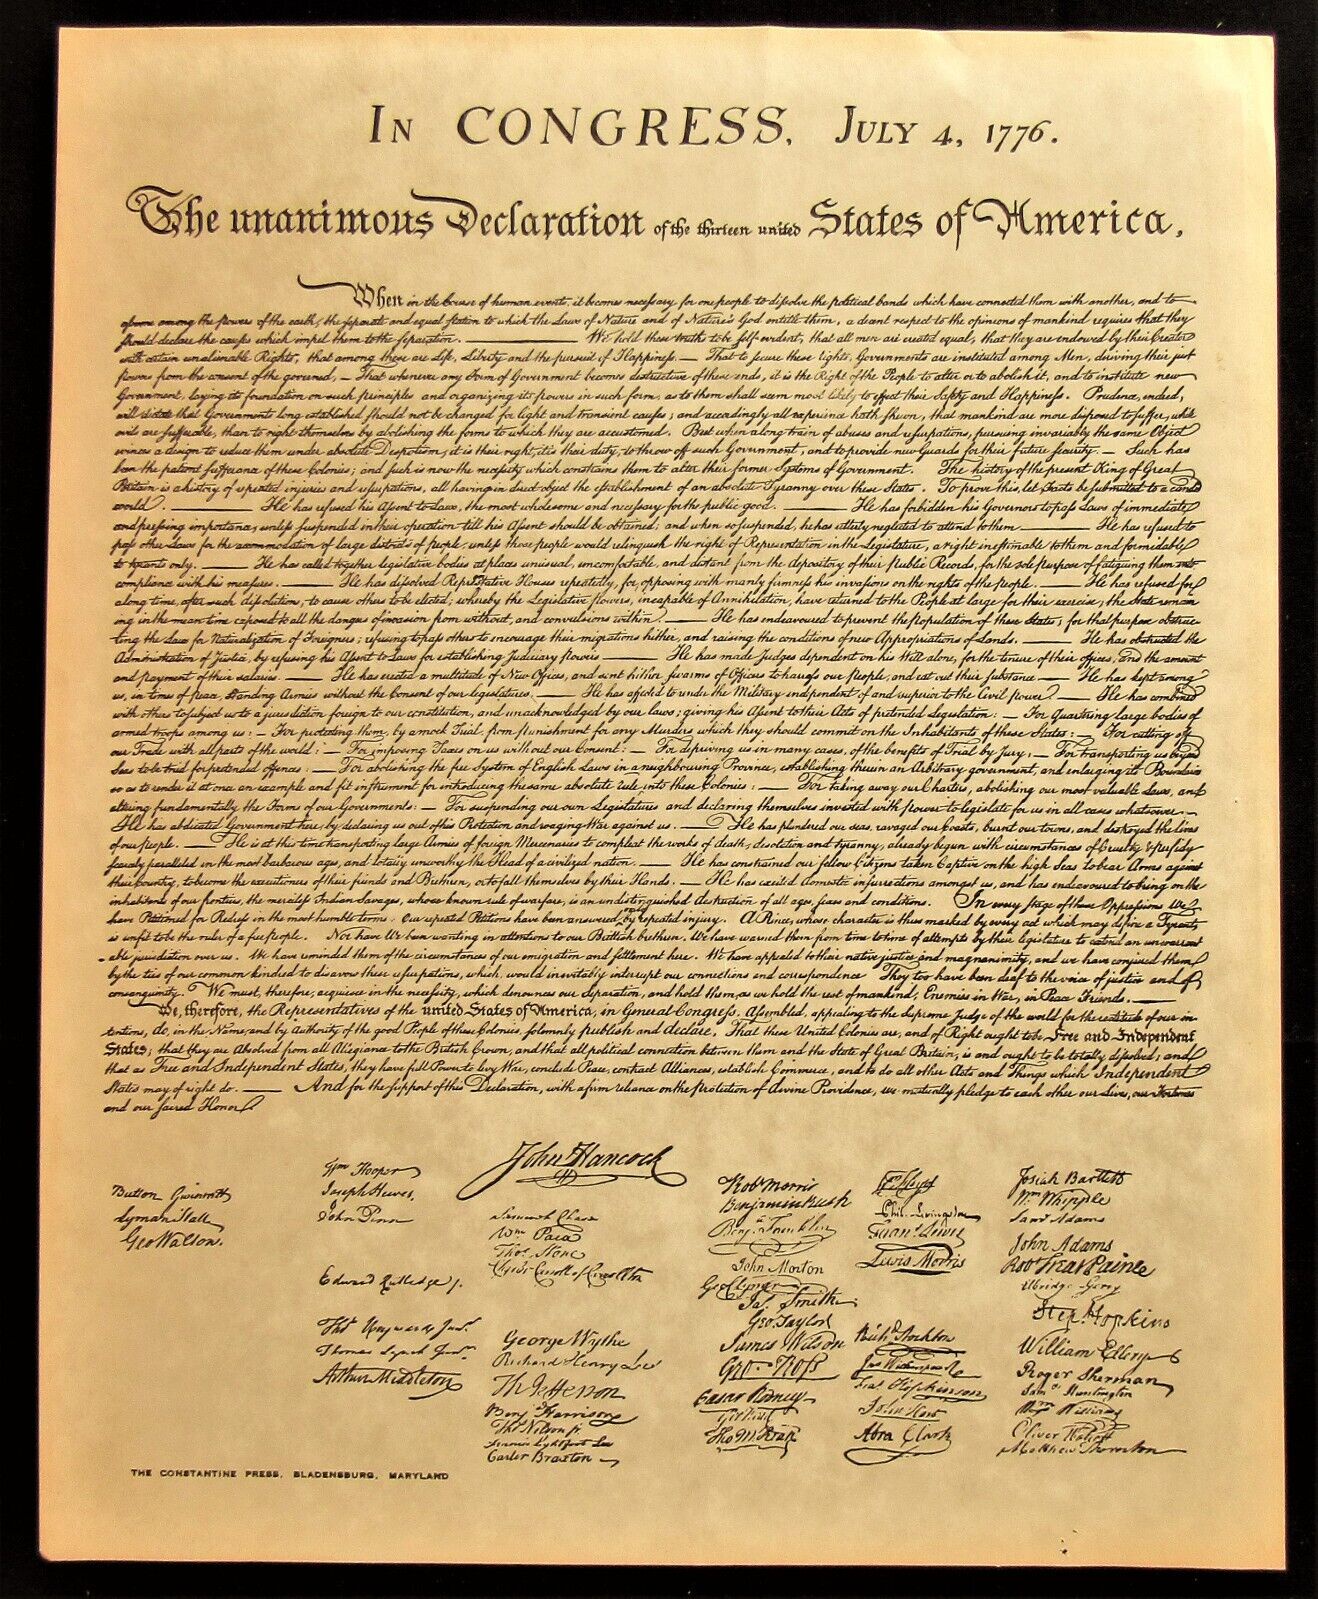 In CONGRESS, July 4, 1776.
The unanimous Declaration of the thirteen united States of America,
When in the Course of human events, it becomes necessary for one people to dissolve the political bands which have connected them with another, and to
assume among the powers of the earth, the separate and equal station to which the Laws of Nature and of Nature's God entitle them, a decent respect to the opinions of mankind requires that they
should declare the causes which impel them to the separation. — We hold these truths to be self-evident, that all men are created equal, that they are endowed by their Creator
with certain unalienable Rights, that among these are Life, Liberty and the pursuit of Happiness. — That to secure these rights, Governments are instituted among Men, deriving their just
powers from the consent of the governed, — That whenever any Form of Government becomes destructive of these ends, it is the Right of the People to alter or to abolish it, and to institute new
Government, laying its foundation on such principles and organizing its powers in such form, as to them shall seem most likely to effect their Safety and Happiness. Prudence, indeed,
will dictate that Governments long established should not be changed for light and transient causes; and accordingly all experience hath shewn, that mankind are more disposed to suffer, while
evils are sufferable, than to right themselves by abolishing the forms to which they are accustomed. But when a long train of abuses and usurpations, pursuing invariably the same Object
evinces a design to reduce them under absolute Despotism, it is their right, it is their duty, to throw off such Government, and to provide new Guards for their future security. — Such has
been the patient sufferance of these Colonies; and such is now the necessity which constrains them to alter their former Systems of Government. The history of the present King of Great
Britain is a history of repeated injuries and usurpations, all having in direct object the establishment of an absolute Tyranny over these States. To prove this, let Facts be submitted to a candid
world. — He has refused his Assent to Laws, the most wholesome and necessary for the public good. — He has forbidden his Governors to pass Laws of immediate
and pressing importance, unless suspended in their operation till his Assent should be obtained; and when so suspended, he has utterly neglected to attend to them. — He has refused to
pass other Laws for the accommodation of large districts of people, unless those people would relinquish the right of Representation in the Legislature, a right inestimable to them and formidable
to tyrants only. — He has called together legislative bodies at places unusual, uncomfortable, and distant from the depository of their Public Records, for the sole purpose of fatiguing them into
compliance with his measures. — He has dissolved Representative Houses repeatedly, for opposing with manly firmness his invasions on the rights of the people. — He has refused for
a long time, after such dissolutions, to cause others to be elected; whereby the Legislative powers, incapable of Annihilation, have returned to the People at large for their exercise; the State remain
ing in the mean time exposed to all the dangers of invasion from without, and convulsions within. — He has endeavoured to prevent the population of these States; for that purpose obstruc
ting the Laws for Naturalization of Foreigners; refusing to pass others to encourage their migrations hither, and raising the conditions of new Appropriations of Lands. — He has obstructed the
Administration of Justice, by refusing his Assent to Laws for establishing Judiciary powers — He has made Judges dependent on his Will alone, for the tenure of their offices, and the amount
and payment of their salaries. — He has erected a multitude of New Offices, and sent hither swarms of Officers to harass our people, and eat out their substance — He has kept among
us, in times of peace, Standing Armies without the Consent of our legislatures. — He has affected to render the Military independent of and superior to the Civil power. — He has combined
with others to subject us to a jurisdiction foreign to our constitution, and unacknowledged by our laws; giving his Assent to their Acts of pretended Legislation: — For Quartering large bodies of
armed troops among us: — For protecting them, by a mock Trial, from punishment for any Murders which they should commit on the Inhabitants of these States: — For cutting off
our Trade with all parts of the world: — For imposing Taxes on us without our Consent: — For depriving us in many cases, of the benefits of Trial by Jury; — For transporting us beyond
Seas to be tried for pretended offences. — For abolishing the free System of English Laws in a neighbouring Province, establishing therein an Arbitrary government, and enlarging its Boundaries
so as to render it at once an example and fit instrument for introducing the same absolute rule into these Colonies: — For taking away our Charters, abolishing our most valuable Laws, and
altering fundamentally the Forms of our Governments: — For suspending our own Legislatures and declaring themselves invested with power to legislate for us in all cases whatsoever. —
He has abdicated Government here, by declaring us out of his Protection and waging War against us. — He has plundered our seas, ravaged our Coasts, burnt our towns, and destroyed the lives
of our people. — He is at this time transporting large Armies of foreign Mercenaries to compleat the works of death, desolation and tyranny, already begun with circumstances of Cruelty & perfidy
scarcely paralleled in the most barbarous ages, and totally unworthy the Head of a civilized nation. — He has constrained our fellow Citizens taken Captive on the high Seas to bear Arms against
their Country, to become the executioners of their friends and Brethren, or to fall themselves by their Hands. — He has excited domestic insurrections amongst us, and has endeavoured to bring on the
inhabitants of our frontiers, the merciless Indian Savages, whose known rule of warfare, is an undistinguished destruction of all ages, sexes and conditions. In every stage of these Oppressions We
have Petitioned for Redress in the most humble terms: Our repeated Petitions have been answered by repeated injury. A Prince, whose character is thus marked by every act which may define a Tyrant,
is unfit to be the ruler of a free people. Nor have We been wanting in attentions to our Brittish brethren. We have warned them from time to time of attempts by their legislature to extend an unwarrant
able jurisdiction over us. We have reminded them of the circumstances of our emigration and settlement here. We have appealed to their native justice and magnanimity, and we have conjured them
by the ties of our common kindred to disavow these usurpations, which, would inevitably interrupt our connections and correspondence They too have been deaf to the voice of justice and of
consanguinity. We must, therefore, acquiesce in the necessity, which denounces our Separation, and hold them, as we hold the rest of mankind, Enemies in War, in Peace Friends. —
We, therefore, the Representatives of the united States of America, in General Congress, Assembled, appealing to the Supreme Judge of the world for the rectitude of our in-
tentions, do, in the Name, and by Authority of the good People of these Colonies, solemnly publish and declare, That these United Colonies are, and of Right ought to be Free and Independent
States; that they are Absolved from all Allegiance to the British Crown, and that all political connection between them and the State of Great Britain, is and ought to be totally dissolved; and
that as Free and Independent States, they have full Power to levy War, conclude Peace, contract Alliances, establish Commerce, and to do all other Acts and Things which Independent
States may of right do. — And for the support of this Declaration, with a firm reliance on the Protection of divine Providence, we mutually pledge to each other our Lives, our Fortunes
and our sacred Honor.
Button Gwinnett
Lyman Hall
Geo Walton.
Wm Hooper
Joseph Hewes,
John Penn
Edward Rutledge /.
Thos Heyward Junr.
Thomas Lynch Junr.
Arthur Middleton
John Hancock
Samuel Chase
Wm Paca
Thos. Stone
Charles Carroll of Carrollton
George Wythe
Richard Henry Lee
Th Jefferson
Benj Harrison
Thos Nelson jr.
Francis Lightfoot Lee
Carter Braxton
Robt Morris
Benjamin Rush
Benj. Franklin
John Morton
Geo Clymer
Jas. Smith
Geo. Taylor
James Wilson
Geo. Ross
Caesar Rodney
Geo Read
Tho M:Kean
Phil. Livingston
Frans. Lewis
Lewis Morris
Richd. Stockton
Jno Witherspoon
Fras. Hopkinson
John Hart
Abra Clark
Josiah Bartlett
Wm. Whipple
Saml Adams
John Adams
Robt Treat Paine
Elbridge Gerry
Step. Hopkins
William Ellery
Roger Sherman
Saml Huntington
Wm Williams
Oliver Wolcott
Matthew Thornton
THE CONSTANTINE PRESS, BLADENSBURG, MARYLAND